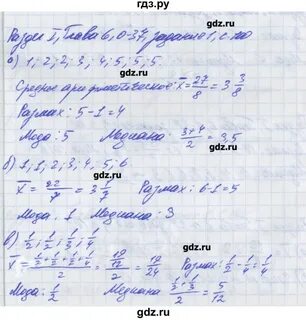 ГДЗ.РУ
Раздел I, Глава 6, О-37, задание 1, с. 210
а) 1; 2; 2; 3; 4; 5; 5; 5
Среднее арифметическое x̄ = 27/8 = 3 3/8
Размах: 5-1=4
Мода: 5 Медиана: (3+4)/2 = 3,5
б) 1; 1; 2; 3; 4; 5; 6
x̄ = 22/7 = 3 1/7 Размах: 6-1=5
Мода: 1 Медиана: 3
в) 1/2; 1/2; 1/3; 1/4
Размах: 1/2 - 1/4 = 1/4
Мода: 1/2 Медиана = 5/12
gdz.ru